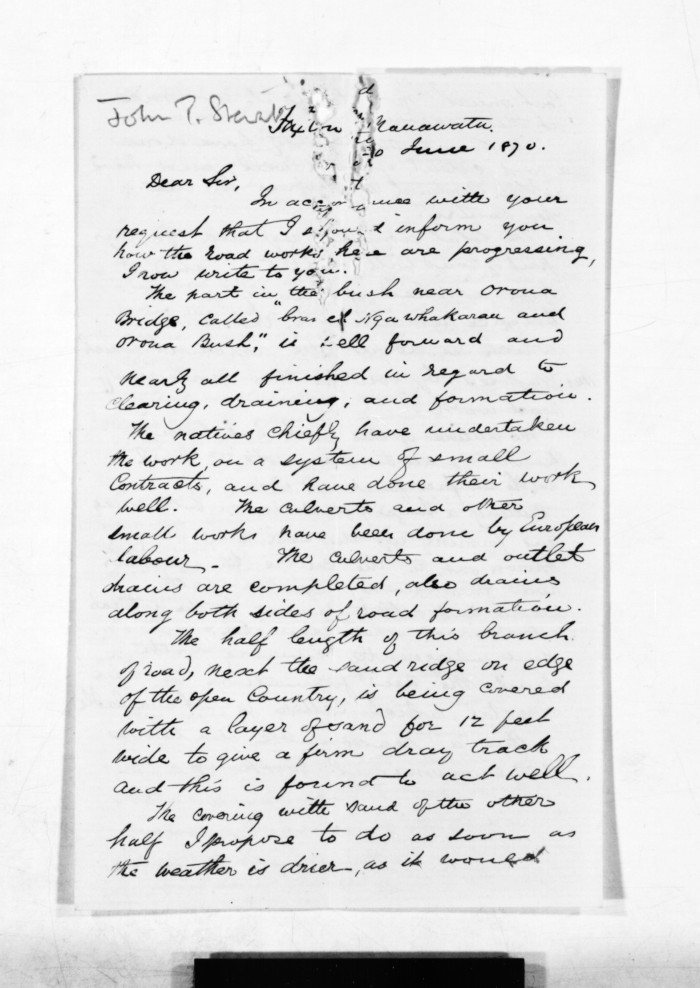 John T. Stewart
Foxton Manawatu
June 1870.
Dear Sir,
In accordance with your
request that I should inform you
how the road works here are progressing,
I now write to you.
The part in "the bush near Oroua
Bridge, called Ngawhakarau and
Oroua Bush," is well forward and
nearly all finished in regard to
clearing, draining, and formation.
The natives chiefly have undertaken
the work, on a system of small
Contracts, and have done their work
well. The culverts and other
small works have been done by European
labour. The culverts and outlet
drains are completed, also drains
along both sides of road formation.
The half length of this branch
of road, next the sand ridge on edge
of the open Country, is being covered
with a layer of sand for 12 feet
wide to give a firm dray track
and this is found to act well.
The covering with sand of the other
half I propose to do as soon as
the weather is drier, as it would